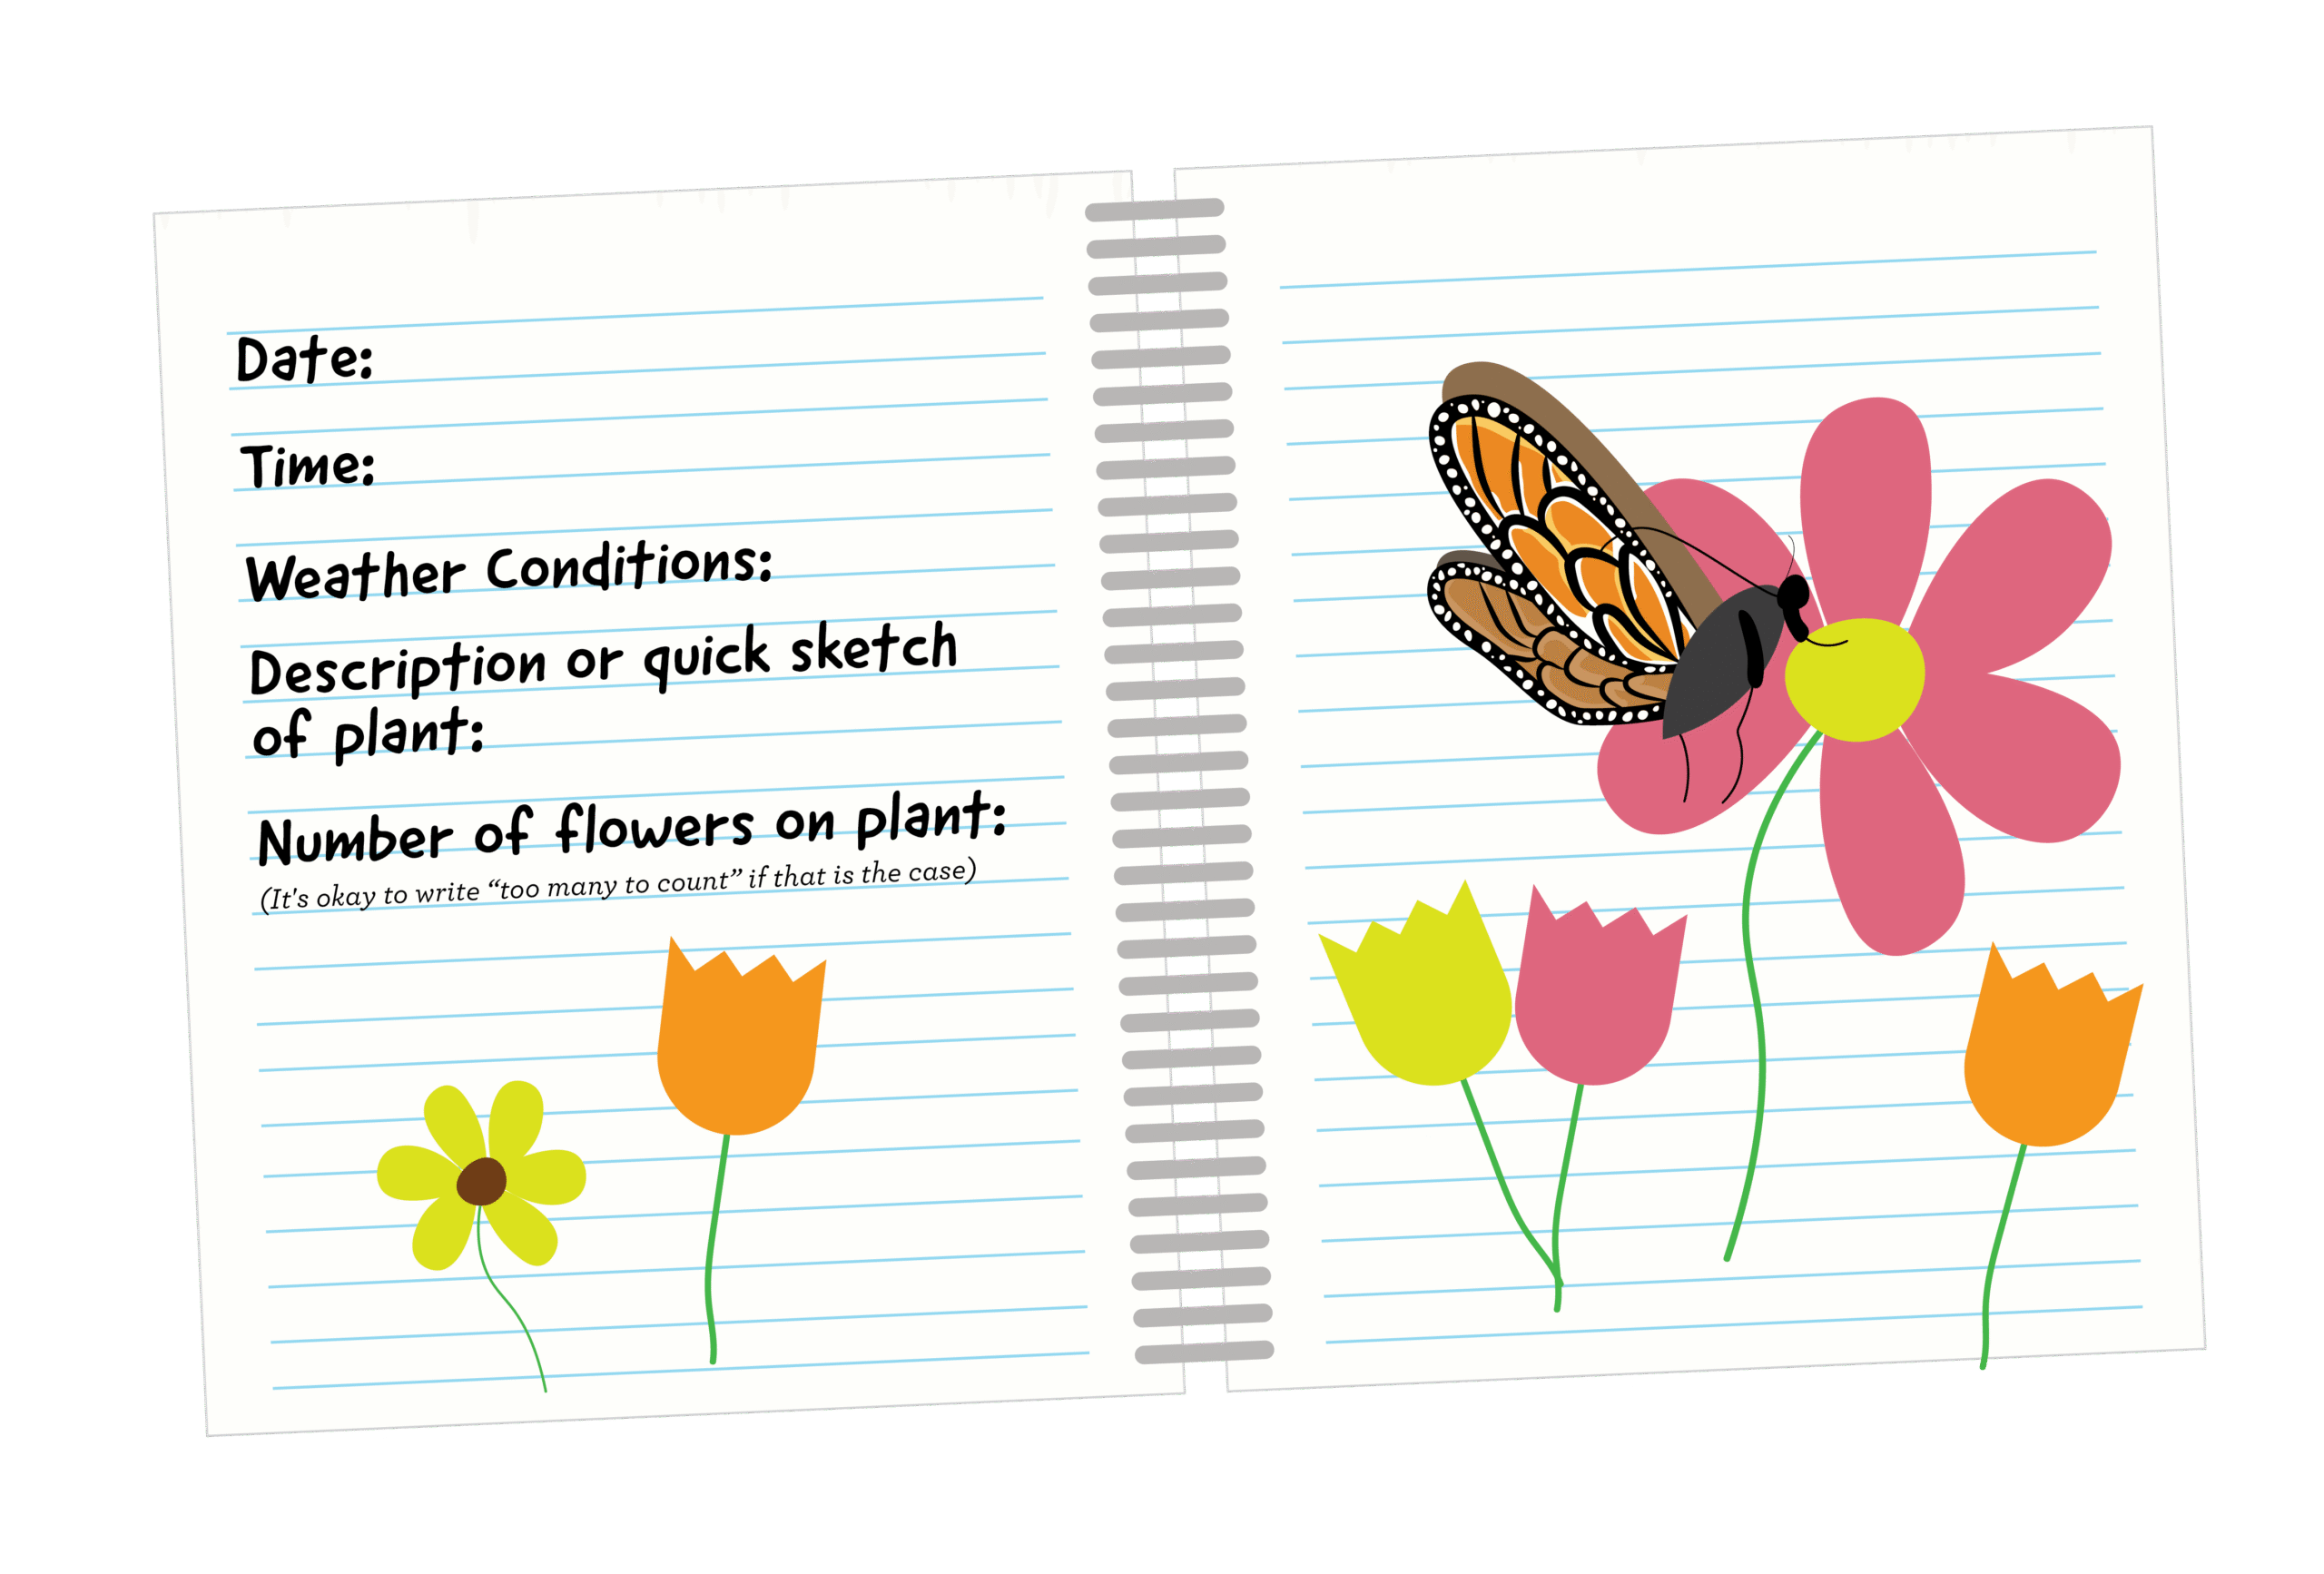 Date:
Time:
Weather Conditions:
Description or quick sketch
of plant:
Number of flowers on plant:
(It's okay to write “too many to count” if that is the case)